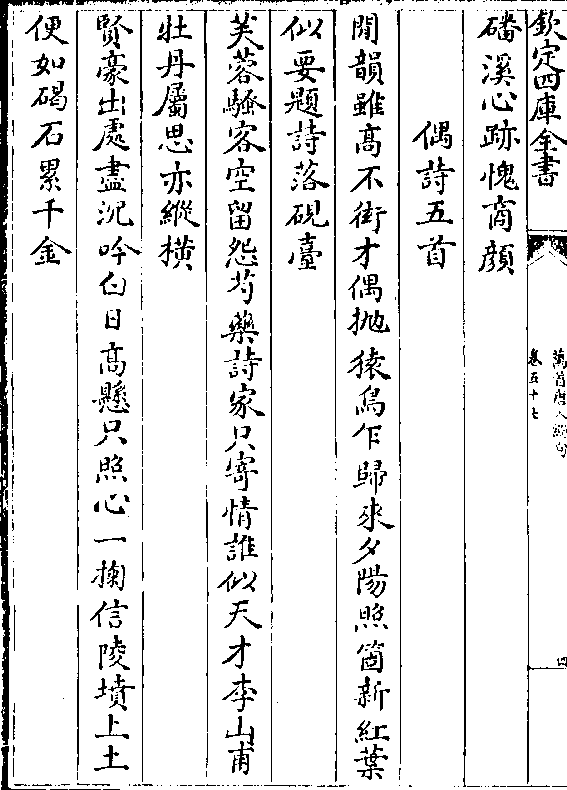 欽定四庫全書
萬首唐人絶句
卷五十七
四
磻溪心跡愧商顔
偶詩五首
閒韻雖髙不衒才偶抛猿鳥乍歸來夕陽照箇新紅葉
似要題詩落硯臺
芙蓉騷客空留怨芍藥詩家只寄情誰似天才李山甫
牡丹屬思亦縱橫
賢豪出處盡沉吟白日髙懸只照心一掬信陵墳上土
便如碣石累千金